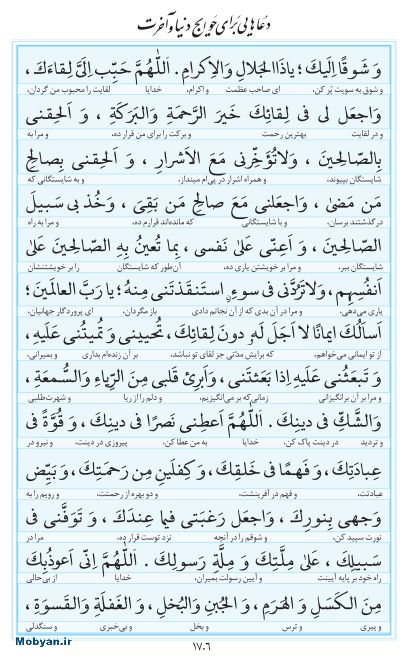 دعاهایی برای حوایج دنیا و آخرت
وَ شَوقًا اِلَیكَ ؛ یاذَا الجَلالِ وَ الاِكرامِ . اَللّٰهُمَّ حَبِّب اِلَیَّ لِقاءَكَ ،
و شوق به سویت پُر کن، ای صاحب عظمت و اکرام، خدایا لقایت را محبوب من گردان،
وَ اجعَل لی فی لِقائِكَ خَیرَ الرَّحمَةِ وَ البَرَكَةِ ، وَ اَلحِقنی
و در لقایت بهترین رحمت و برکت را برای من قرار ده، و مرا به
بِالصّالِحینَ ، وَ لاتُؤَخِّرنی مَعَ الاَشرارِ ، وَ اَلحِقنی بِصالِحِ
شایستگان بپیوند، و همراه اشرار در پی‌ام مینداز، و به شایستگانی که
مَن مَضیٰ ، وَ اجعَلنی مَعَ صالِحِ مَن بَقِیَ ، وَ خُذ بی سَبیلَ
در گذشتند برسان، و با شایستگانی که مانده‌اند قرارم ده، و مرا به راه
الصّالِحینَ ، وَ اَعِنّی عَلیٰ نَفسی ، بِما تُعینُ بِهِ الصّالِحینَ عَلیٰ
شایستگان ببر، و مرا بر خویشتن یاری ده، آن‌طور که شایستگان را بر خویشتنشان
اَنفُسِهِم ، وَ لاتَرُدَّنی فی سوءٍ اِستَنقَذتَنی مِنهُ ؛ یا رَبَّ العالَمینَ ؛
یاری می‌دهی، و مرا در آن بدی که از آن نجاتم دادی باز مگردان، ای پروردگار جهانیان،
اَساَلُكَ ایمانًا لا اَجَلَ لَهُ دونَ لِقائِكَ ، تُحیینی وَ تُمیتُنی عَلَیهِ ،
از تو ایمانی می‌خواهم، که برایش مدّتی جز لقای تو نباشد، بر آن زنده‌ام بداری و بمیرانی،
وَ تَبعَثُنی عَلَیهِ اِذا بَعَثتَنی ، وَ اَبرِئ قَلبی مِنَ الرِّیاءِ وَ السُّمعَةِ ،
و مرا بر آن برانگیزانی زمانی‌که بر می‌انگیزیم، و دلم را از ریا و شهرت‌طلبی
وَ الشَّكِّ فی دینِكَ . اَللّٰهُمَّ اَعطِنی نَصرًا فی دینِكَ ، وَ قُوَّةً فی
و تردید در دینت پاک کن، خدایا به من عطا کن، پیروزی در دینت، و نیرو در
عِبادَتِكَ ، وَ فَهمًا فی خَلقِكَ ، وَ كِفلَینِ مِن رَحمَتِكَ ، وَ بَیِّض
عبادتت، و فهم در آفرینشت، و دو بهره از رحمتت، و رویم را به
وَجهی بِنورِكَ ، وَ اجعَل رَغبَتی فیما عِندَكَ ، وَ تَوَفَّنی فی
نورت سپید کن، و شوقم را در آنچه نزد توست قرار ده، مرا در
سَبیلِكَ ، عَلیٰ مِلَّتِكَ وَ مِلَّةِ رَسولِكَ . اَللّٰهُمَّ اِنّی اَعوذُبِكَ
راه خود بر پایه آیینت و آیین رسولت بمیران، خدایا از بی‌حالی
مِنَ الكَسَلِ وَ الهَرَمِ ، وَ الجُبنِ وَ البُخلِ ، وَ الغَفلَةِ وَ القَسوَةِ ،
و پیری و ترس و بخل و بی‌خبری و سنگدلی
Mobyan.ir
۱۷۰۶